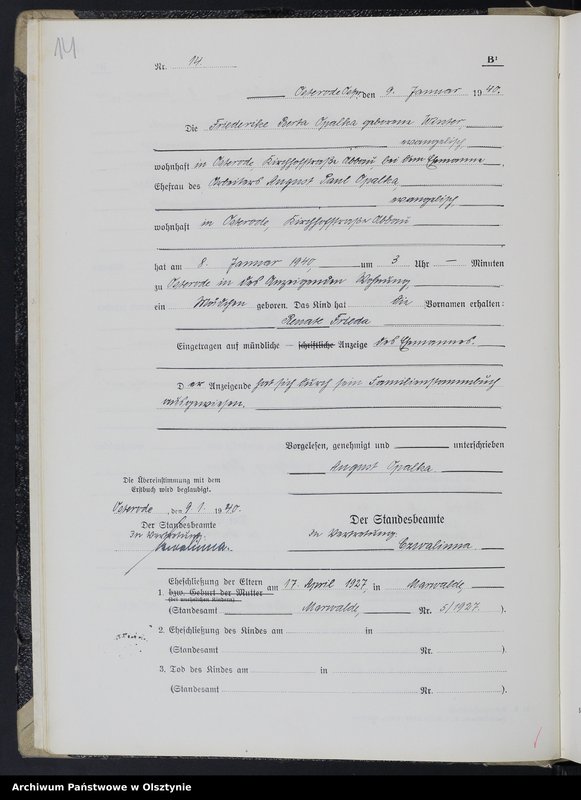 14
Nr. 14.
B¹
Osterode Ostpr. den 9. Januar 1940.
Die Friederike Berta Opalka geborene Winter,
evangelisch,
wohnhaft in Osterode Kirchhofstraße Abbau bei dem Ehemanne
Ehefrau des Arbeiters August Paul Opalka,
evangelisch,
wohnhaft in Osterode, Kirchhofstraße Abbau
hat am 8. Januar 1940, um 3 Uhr — Minuten
zu Osterode in des Anzeigenden Wohnung
ein Mädchen geboren. Das Kind hat die Vornamen erhalten:
Renate Frieda
Eingetragen auf mündliche – schriftliche Anzeige des Ehemannes.
Der Anzeigende hat sich durch sein Familienstammbuch
ausgewiesen.
Vorgelesen, genehmigt und unterschrieben
August Opalka.
Die Übereinstimmung mit dem
Erstbuch wird beglaubigt.
Osterode, den 9.1. 1940.
Der Standesbeamte
In Vertretung.
Czwalinna.
Der Standesbeamte
In Vertretung.
Czwalinna
1. Eheschließung der Eltern am 17. April 1927, in Marwalde,
bzw. Geburt der Mutter
(bei unehelichen Kindern)
(Standesamt Marwalde, Nr. 5/1927. ).
2. Eheschließung des Kindes am in
(Standesamt Nr. )
3. Tod des Kindes am in
(Standesamt Nr. ).
Archiwum Państwowe w Olsztynie